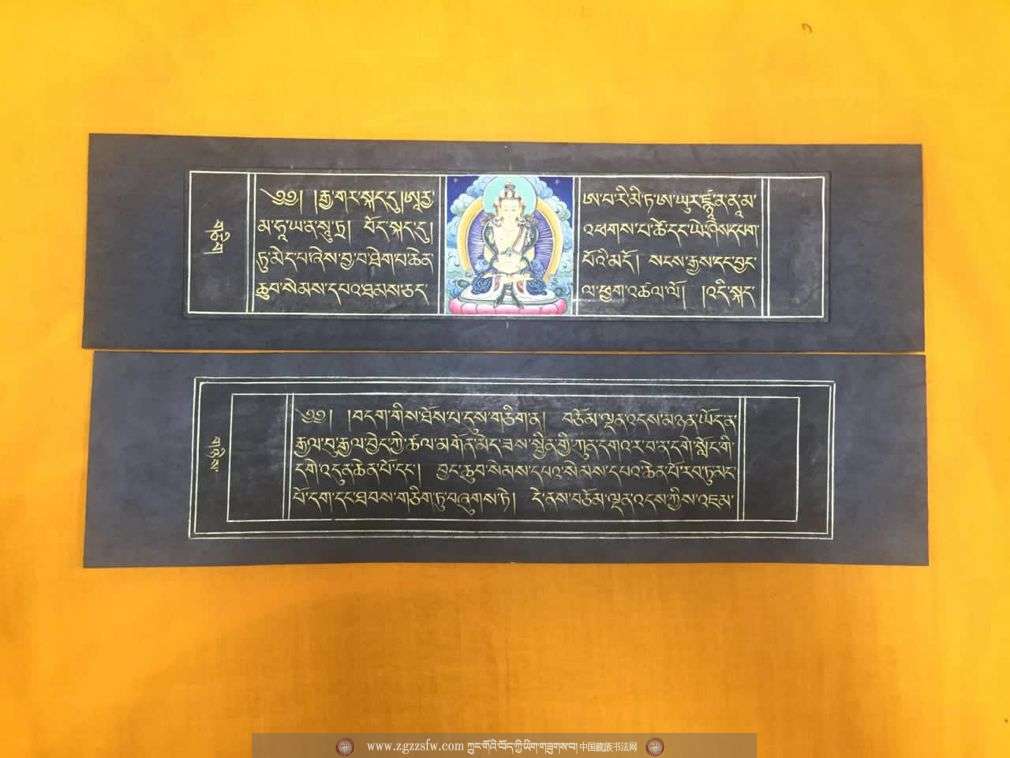 གཅིག
༄༅། །རྒྱ་གར་སྐད་དུ།ཨཱརྱ་ ཨ་པ་རི་མི་ཏ་ཨ་ཡུར་ཛྙཱ་ན་ནཱ་མ་
མ་ཧཱ་ཡ་ན་སཱུ་ཏྲ། བོད་སྐད་དུ། འཕགས་པ་ཚེ་དང་ཡེ་ཤེས་དཔག་
ཏུ་མེད་པ་ཞེས་བྱ་བ་ཐེག་པ་ཆེན་ པོའི་མདོ། སངས་རྒྱས་དང་བྱང་
ཆུབ་སེམས་དཔའ་ཐམས་ཅད་ ལ་ཕྱག་འཚལ་ལོ། །འདི་སྐད་
གཉིས
༄༅། །བདག་གིས་ཐོས་པ་དུས་གཅིག་ན། བཅོམ་ལྡན་འདས་མཉན་ཡོད་ན་
རྒྱལ་བུ་རྒྱལ་བྱེད་ཀྱི་ཚལ་མགོན་མེད་ཟས་སྦྱིན་གྱི་ཀུན་དགའ་ར་བ་ན་དགེ་སློང་གི་
དགེ་འདུན་ཆེན་པོ་དང་། བྱང་ཆུབ་སེམས་དཔའ་སེམས་དཔའ་ཆེན་པོ་རབ་ཏུ་མང་
པོ་དག་དང་ཐབས་གཅིག་ཏུ་བཞུགས་ཏེ། དེ་ནས་བཅོམ་ལྡན་འདས་ཀྱིས་འཇམ་
www.zgzzsfw.com ཀྲུང་གོའི་བོད་ཀྱི་ཡིག་གཟུགས་དྲ། 中国藏族书法网